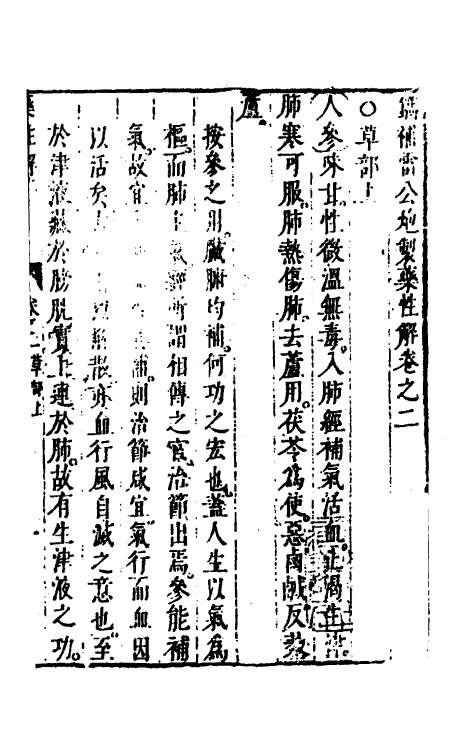 鐫補雷公炮製藥性解卷之二
○草部上
人參味甘性微溫無毒入肺經補氣活血止渴生津
肺寒可服肺熱傷肺去蘆用茯苓為使惡鹵鹹反藜
蘆
按參之用臟腑均補何功之宏也蓋人生以氣為
樞而肺主氣所謂相傳之官治節出焉參能補
氣故宜補則治節咸宜氣行而血因
以活矣散亦血行風自滅之意也至
於津液藏於膀胱實上連於肺故有生津液之功
藥性解 卷之二草部上